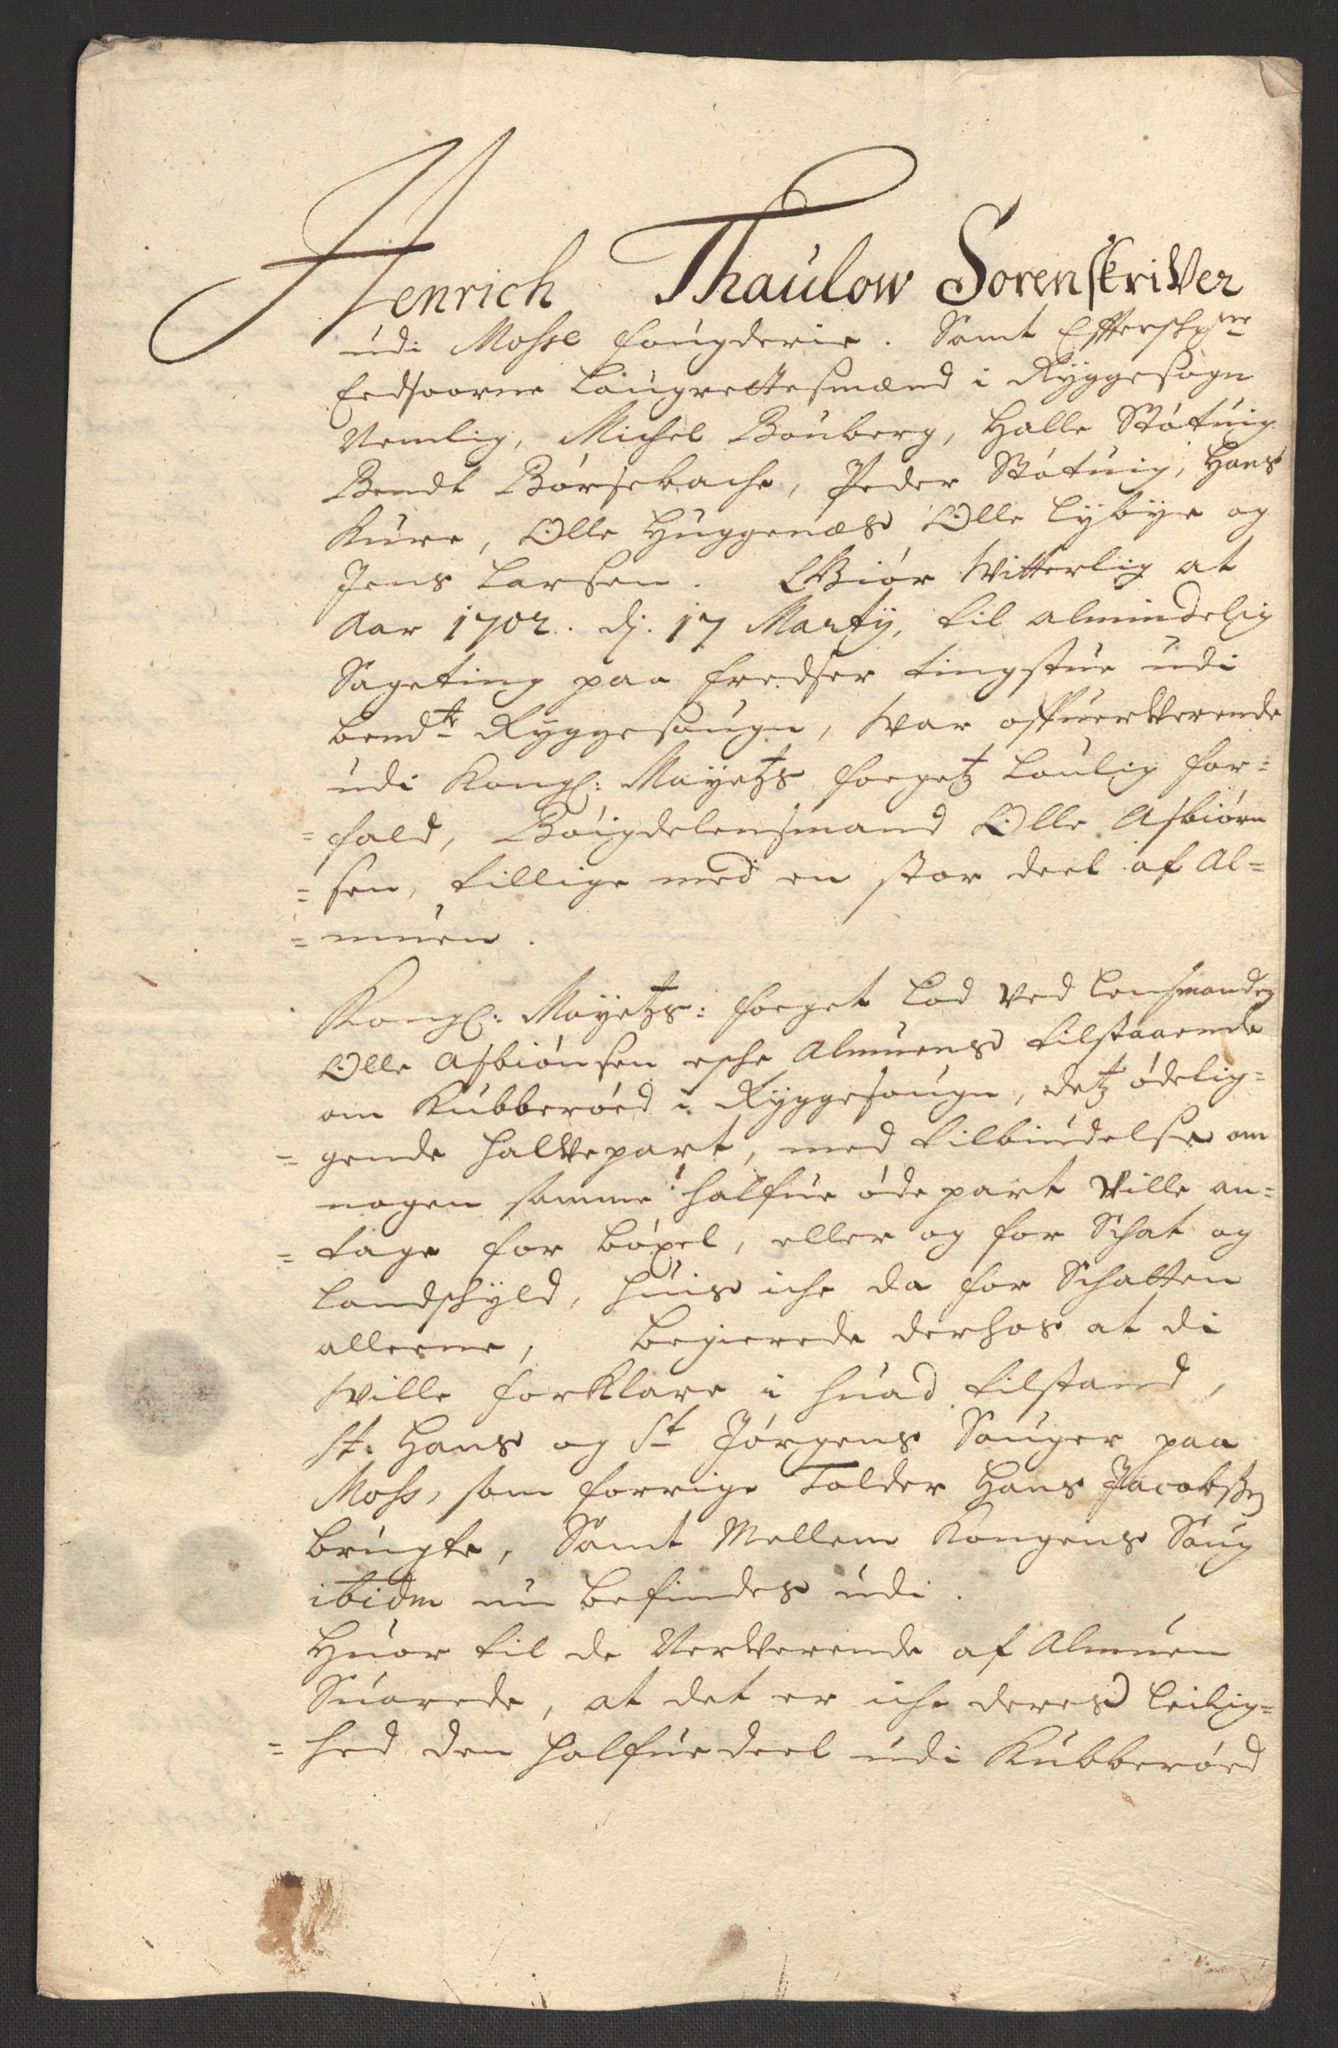 Henrich Thaulow Sorenskriver
udi Mosse fougderie. Samt Effterschrne
Eedsoorne Laugrettesmænd i Ryggesogn
Nemlig, Michel Bouberg, Halle Støtuig
Bendt Børsebache, Peder Støtuig, Hans
Kure, Olle Huggenæs Olle Lybye og
Jens Larsen. Giør Witterlig at
Aar 1702. dj. 17 Marty, til almindelig
Sageting paa Fredser tingstue udi
bemdte Ryggesougn, War offuerVerende
udi Kongl: Mayetzs fogetz Loulig for=
=fald, Bøigdelensmand Olle Asbiørn
=sen, tillige med en stor deel af Al=
=muen.
Kongl: Mayetzs: foeget Lod Ved Lensmanden
Olle Asbiønsen eshe Almuens tilstaaende
om Kubberøed i Ryggesougn, detz ødelig=
=gende halVepart, med tilbiudelse om
nogen samme halfue øde part Ville an=
=tage for bøxel, eller og for Schat og
Landschyld, huis iche da for Schatten
alleene, Begierede derhos at di
Wille forKlare i huad tilstand,
St: Hans og St Jørgens Sauger paa
Moss, som forrige Tolder Hans Jacobsen
brugte, Samt Mellem Kongens Saug
ibidm nu befindes udi.
Huor til de NerVerende af Almuen
Suarede, at det er iche deres Leilig=
=hed den halfuedeel udi Kubberøed